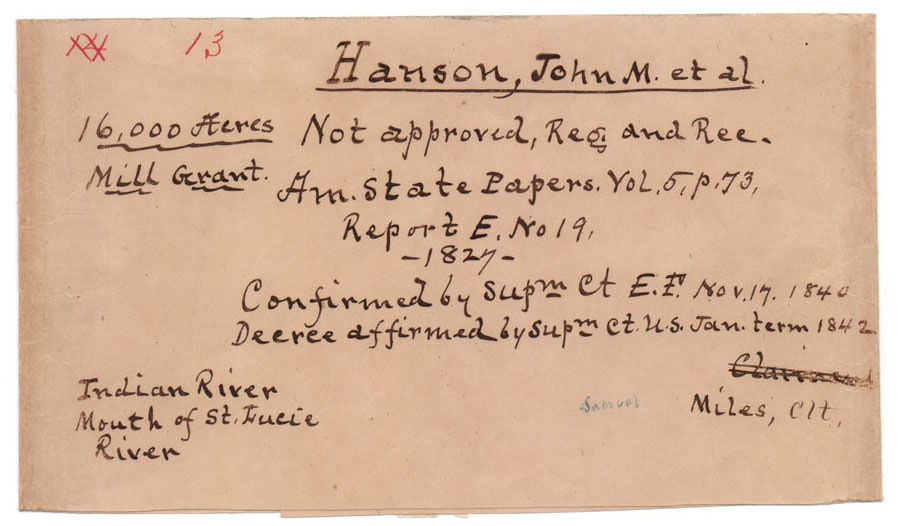 13
Hanson, John M. et al.
16,000 Acres
Mill Grant.
Not approved, Reg and Rec.
Am. State Papers. Vol, 5, p. 73,
Report E. No 19,
-1827-
Confirmed by Supm Ct E.F. Nov. 17. 1840
Decree affirmed by Supm Ct. U.S. Jan. term 1842
Indian River
Mouth of St. Lucie
River
Samuel Miles, Clt,